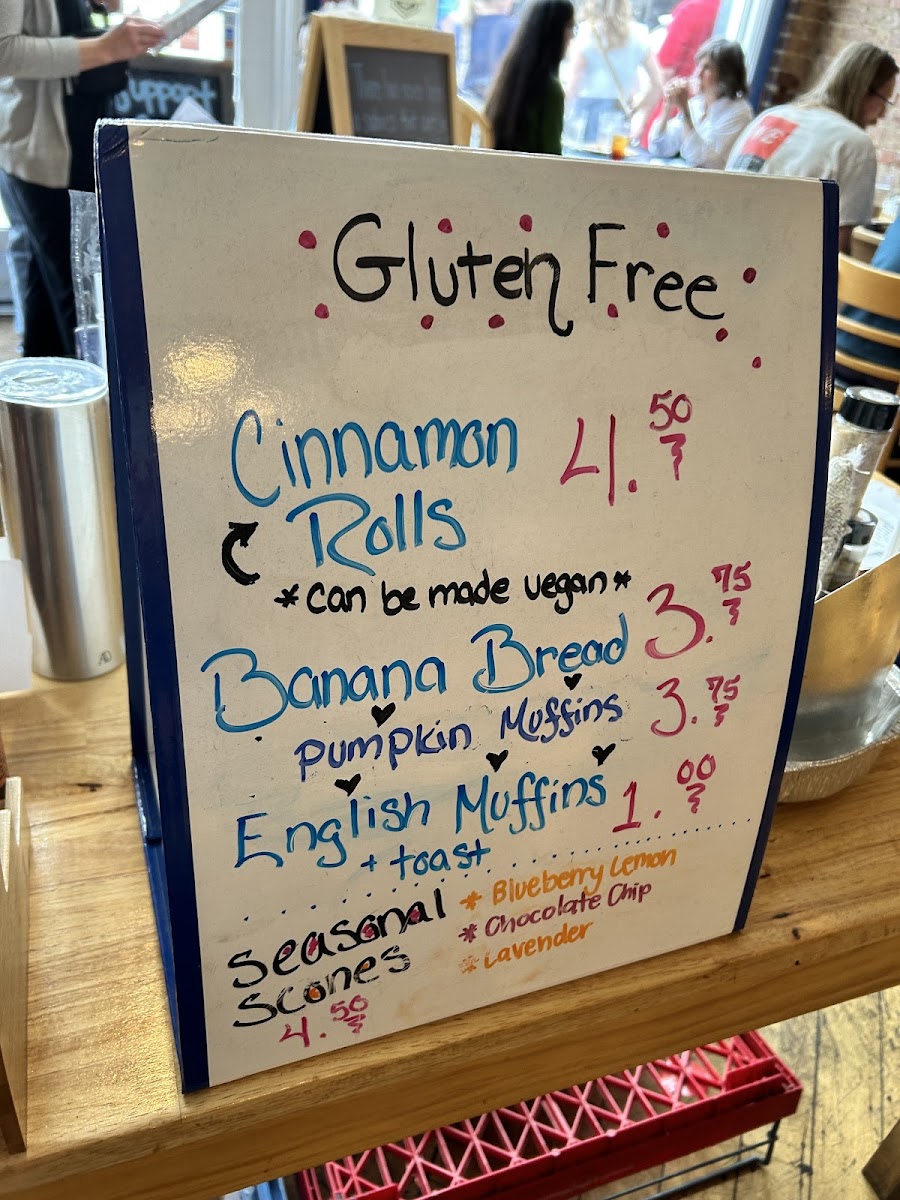 support
Gluten Free
Cinnamon 4.50
Rolls
*can be made vegan*
Banana Bread 3.75
Pumpkin Muffins 3.75
English Muffins 1.00
+ toast
Seasonal
Scones
4.50
* Blueberry Lemon
* Chocolate Chip
* Lavender